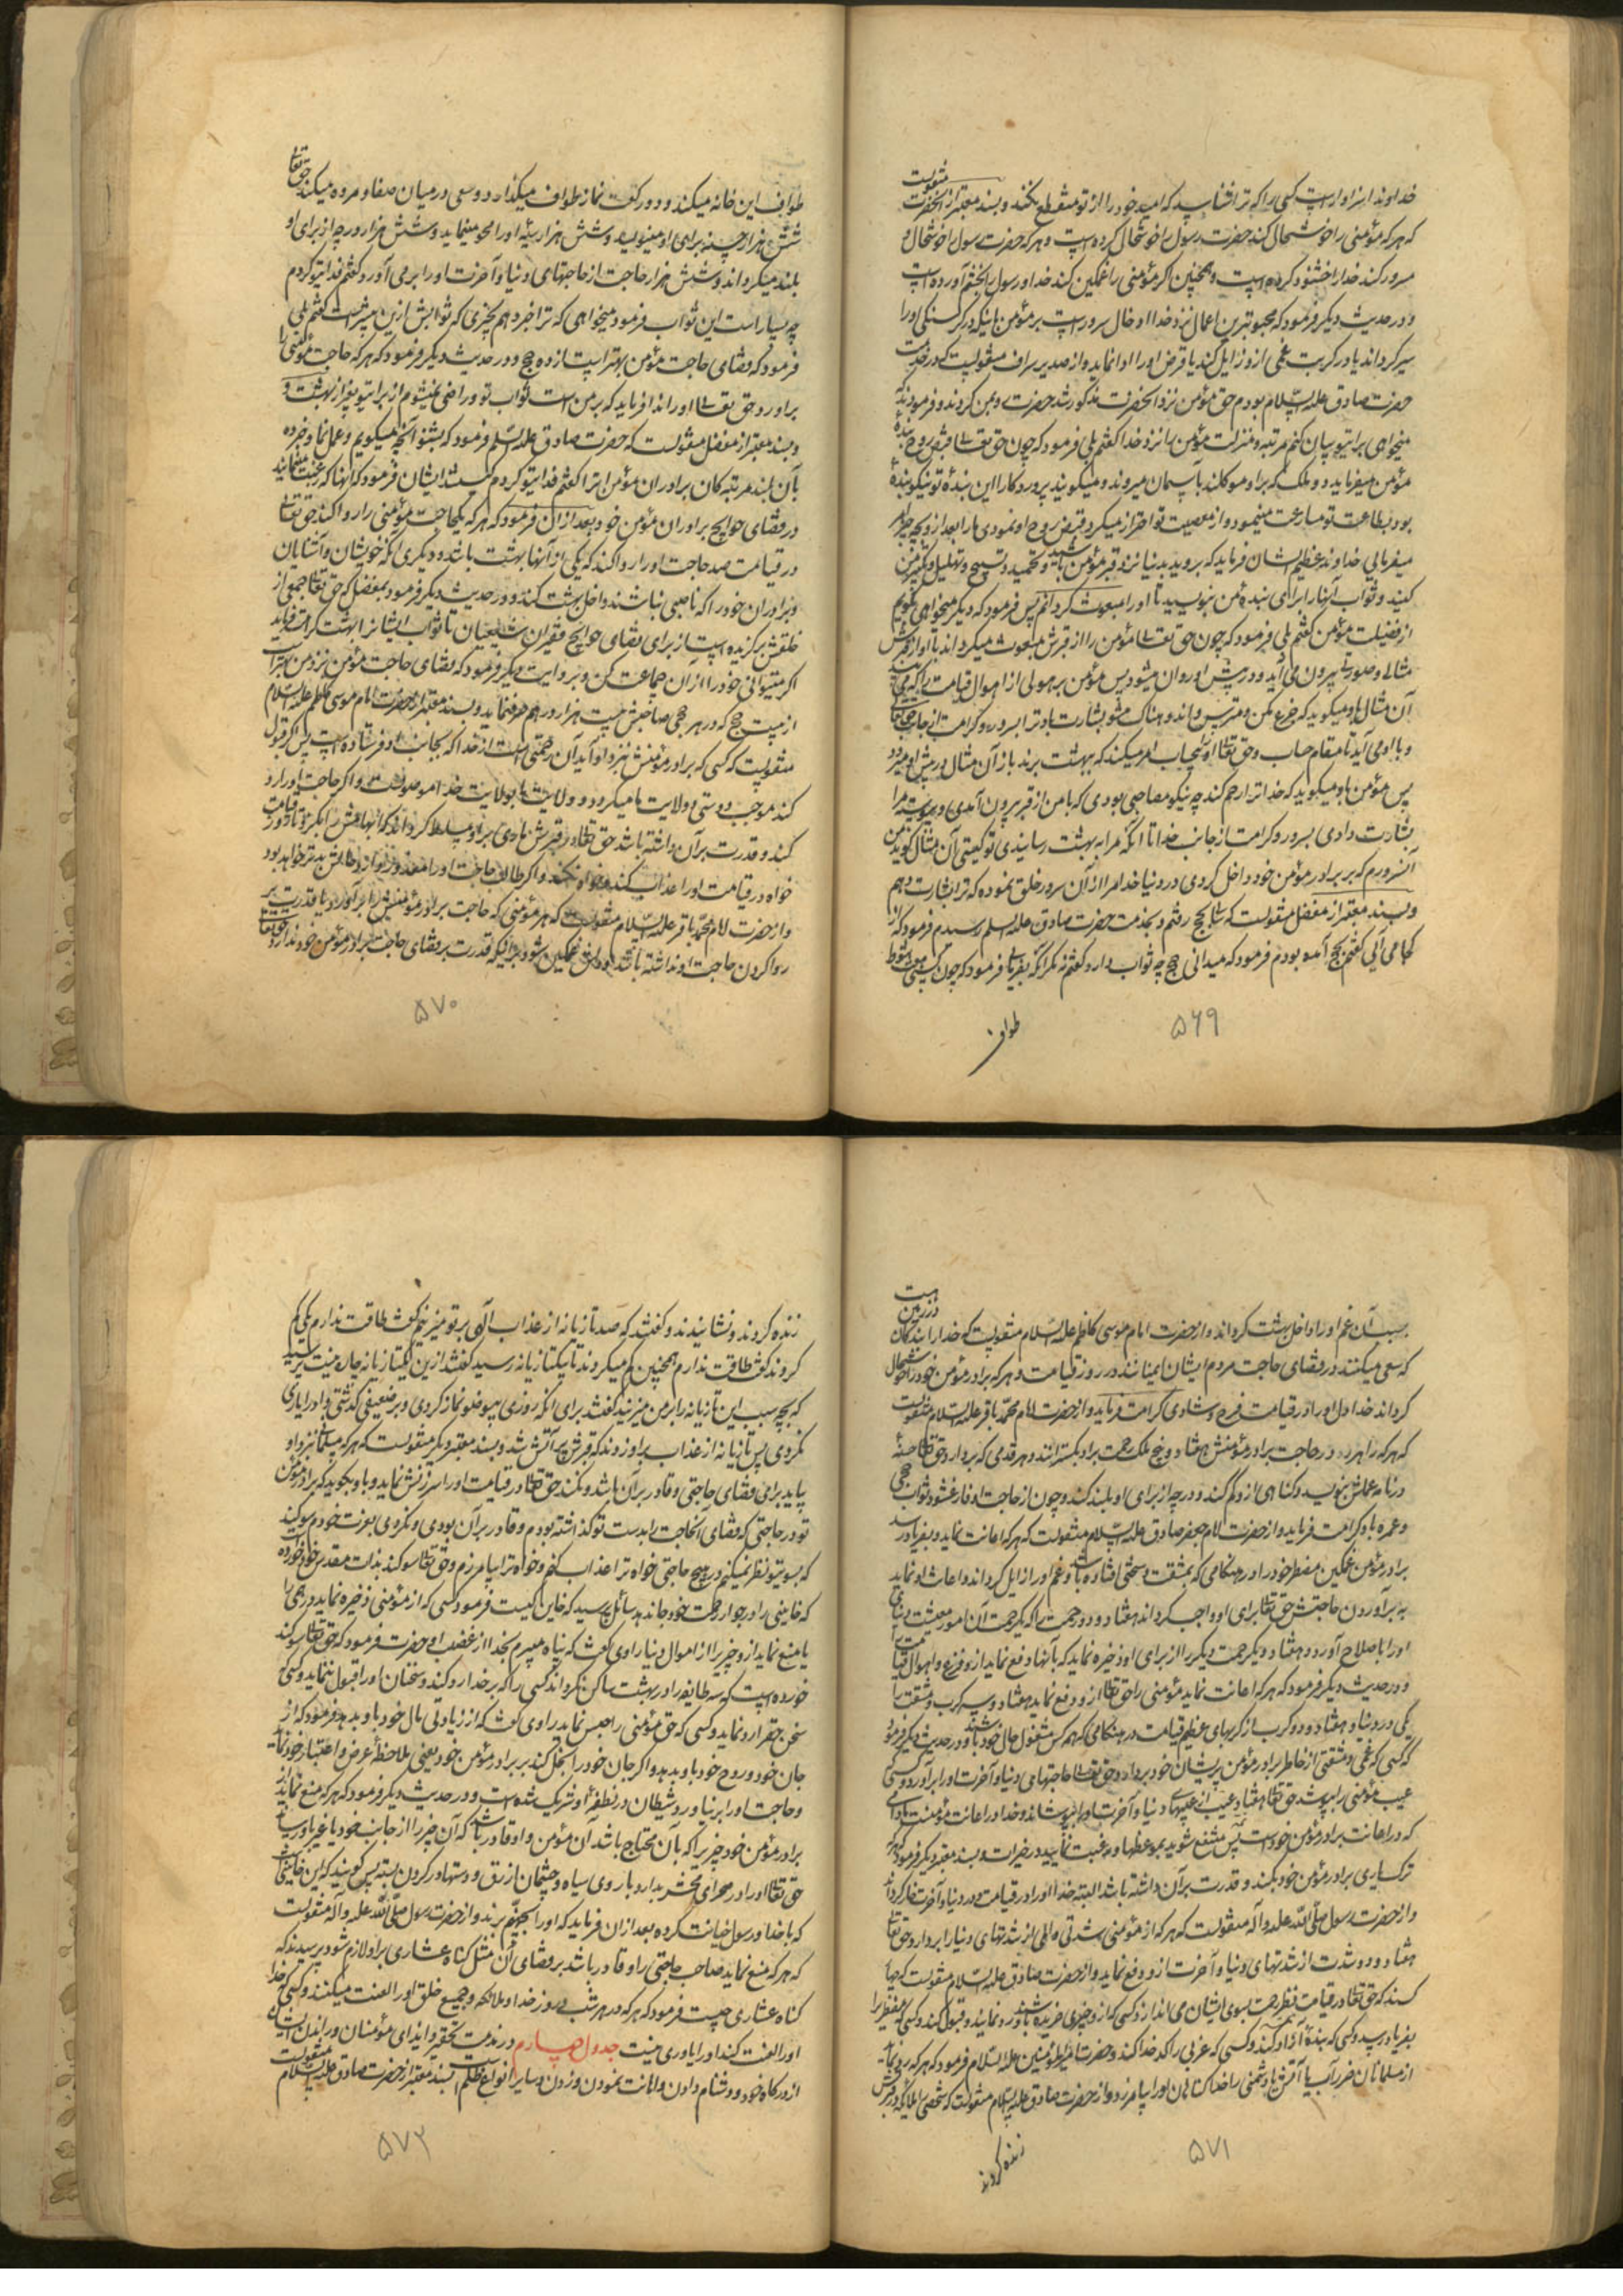 خداوند سزاوار است کسی را که ترا نشناسد که امید خود را از تو منقطع نکند و بسند معتبر از آنحضرت منقولست
که هر که مؤمنی را خوشحال کند حضرت رسول را خوشحال کرده است و هر که حضرت رسول را خوشحال و
مسرور کند خدا را خشنود کرده است و همچنین اگر مؤمنی را غمگین کند خدا و رسول را بخشم آورده است
و در حدیث دیگر فرمود که محبوبترین اعمال نزد خدا ادخال سرور است بر مؤمن باینکه در گرسنگی او را
سیر گرداند یا در کربت غمی از او زایل کند یا قرض او را ادا نماید و از سدیر صراف منقولست که در خدمت
حضرت صادق علیه السلام بودم حق مؤمن نزد آنحضرت مذکور شد حضرت رو بمن کردند و فرمودند که
میخواهی برای تو بیان کنم مرتبه و منزلت مؤمن را نزد خدا گفتم بلی فرمود که چون حق تعالی قبض روح بنده
مؤمن میفرماید دو ملک که بر او موکلند بآسمان میروند و میگویند پروردگارا این بنده تو نیکو بنده
بود بطاعت تو مسارعت مینمود و از معصیت تو احتراز میکرد قبض روح او نمودی ما را بعد از او بچه چیز امر
میفرمایی خداوند عظیم الشان فرماید که بروید بدنیا نزد قبر مؤمن باشید و تحمید و تسبیح و تهلیل و تکبیر من
کنید و ثواب آنها را برای بنده من بنویسید تا او را مبعوث گردانم پس فرمود که دیگر میخواهی بگویم
از فضیلت مؤمن گفتم بلی فرمود که چون حق تعالی مؤمن را از قبرش مبعوث میگرداند با او از قبرش
مثالی و صورتی بیرون می آید و در پیش او روان میشود پس مؤمن بر هولی از اهوال قیامت را که می بیند
آن مثال باو میگوید که جزع مکن و مترس و اندوهناک مشو بشارت باد ترا بسرور و کرامت از جانب حق تعالی
و با او می آید تا بمقام حساب و حق تعالی او را بی حساب امر میکند که ببهشت برند باز آن مثال در پیش او میرود
پس مؤمن باو میگوید که خدا ترا رحم کند چه نیکو مصاحبی بودی که با من از قبر بیرون آمدی و پیوسته مرا
بشارت دادی بسرور و کرامت از جانب خدا تا آنکه مرا به بهشت رسانیدی تو کیستی آن مثال گوید من
آن سرورم که بر برادر مؤمن خود داخل کردی در دنیا خدا مرا از آن سرور خلق نموده که ترا بشارت دهم
و بسند معتبر از مفضل منقولست که بحج رفتم و بخدمت حضرت صادق علیه السلم رسیدم فرمود که از
کجا می آیی گفتم بحج آمده بودم فرمود که میدانی حج چه ثواب دارد گفتم نه مگر آنکه بفرمایی فرمود که چون کسی
طواف
۵۶۹
طواف این خانه میکند و دو رکعت نماز طواف میگذارد و سعی در میان صفا و مروه میکند حق تعالی
شش هزار حسنه برای او مینویسد و شش هزار سیئه او را محو مینماید و شش هزار درجه از برای او
بلند میگرداند و شش هزار حاجت از حاجتهای دنیا و آخرت او را بر می آورد گفتم فدای تو گردم
چه بسیار است این ثواب فرمود میخواهی که ترا خبر دهم بچیزی که ثوابش ازین بیشتر است گفتم بلی
فرمود که قضای حاجت مؤمن بهتر است از ده حج و در حدیث دیگر فرمود که هر که حاجت مؤمنی را
برآورد حق تعالی او را ندا فرماید که بر من است ثواب تو و راضی نمیشوم از برای تو بغیر از بهشت و
و بسند معتبر از مفضل منقولست که حضرت صادق علیه السلم فرمود که بشنو آنچه میگویم و عمل نما و خبر ده
بآن بلند مرتبه گان برادران مؤمن را گفتم فدای تو گردم کیستند ایشان فرمود که آنها که رغبت مینمایند
در قضای حوایج برادران مؤمن خود بعد از آن فرمود که هر که یکحاجت مؤمنی را روا کند حق تعالی
در قیامت صد حاجت او را روا کند که یکی از آنها بهشت باشد و دیگری آنکه خویشان و آشنایان
و برادران خود را که ناصبی نباشند داخل بهشت کند و در حدیث دیگر فرمود بمفضل که حق تعالی جمعی از
خلقش برگزیده است از برای قضای حوایج فقیران شیعیان تا ثواب ایشانرا بهشت کرامت فرماید
اگر میتوانی خود را از آن جماعت کن و بروایت دیگر فرمود که قضای حاجت مؤمن نزد من بهتر است
از بیست حج که در هر حجی صاحبش بیست هزار درهم صرف نماید و بسند معتبر از حضرت امام موسی کاظم علیه السلام
منقولست که کسی که برادر مؤمنش نزد او آید آن رحمتی است از خدا که بجانب او فرستاده است پس اگر قبول
کند موجب دوستی و ولایت ما میگردد و ولایت ما بولایت خدا موصولست و اگر حاجت او را رد
کند و قدرت بر آن داشته باشد حق تعالی در قبرش ماری بر او مسلط گرداند که انگشتش را بگزد تا روز قیامت
خواه در قیامت او را عذاب کند و خواه نکند و اگر طالب حاجت او را معذور دارد حالش بدتر خواهد بود
و از حضرت امام محمد باقر علیه السلام منقولست که هر مؤمنی که حاجت برادر مؤمنش را برآورد یا قدرت بر
روا کردن حاجت او نداشته باشد و دلش غمگین شود برای اینکه قدرت بر قضای حاجت برادر مؤمن خود ندارد حق تعالی
۵۷۰
بسبب آن غم او را داخل بهشت گرداند و از حضرت امام موسی کاظم علیه السلام منقولست که خدا را بندگان در زمین هست
که سعی میکنند در قضای حاجت مردم ایشان ایمنانند در روز قیامت و هر که برادر مؤمن خود را خوشحال
گرداند خدا دل او را در قیامت فرح و شادی کرامت فرماید و از حضرت امام محمد باقر علیه السلام منقولست
که هر که راه رود در حاجت برادر مؤمنش هفتاد و پنج ملک رحمت بر او بگسترانند و هر قدمی که بردارد حق تعالی حسنه
در نامه عملش بنویسد و گناهی از او کم کند و درجه از برای او بلند کند و چون از حاجت او فارغ شود ثواب حجی
و عمره باو کرامت فرماید و از حضرت امام جعفر صادق علیه السلام منقولست که هر که اعانت نماید و بفریاد رسد
برادر مؤمن غمگین مضطر خود را در هنگامی که بمشقت و سختی افتاده باشد و غم او را زایل گرداند و اعانت او نماید
به برآوردن حاجتش حق تعالی برای او واجب گرداند هفتاد و دو رحمت را که یک رحمت آن امور معیشت دنیای
او را باصلاح آورد و هفتاد و یک رحمت دیگر را از برای او ذخیره نماید که بآنها دفع نماید از او فزع و اهوال قیامت
و در حدیث دیگر فرمود که هر که اعانت نماید مؤمنی را حق تعالی از او دفع نماید هفتاد و سه کرب و مشقت را
یکی در دنیا و هفتاد و دو کرب از کربهای عظیم قیامت در هنگامی که همه کس مشغول حال خود باشند و در حدیث دیگر فرمود
که کسی که غمی و مشقتی از خاطر برادر مؤمن پریشان خود بردارد حق تعالی حاجتهای دنیا و آخرت او را برآورد و کسی
عیب مؤمنی را بپوشد حق تعالی هفتاد عیب از عیبهای دنیا و آخرت او را بپوشاند و خدا در اعانت مؤمنست مادامی
که در اعانت برادر مؤمن خود است پس منتفع شوید بموعظها و رغبت نمایید در خیرات و بسند معتبر دیگر فرمود که هر که
ترک یاری برادر مؤمن خود بکند و قدرت بر آن داشته باشد البته خدا او را در قیامت و در دنیا و آخرت خوار گرداند
و از حضرت رسول صلی الله علیه و آله منقولست که هر که از مؤمنی شدتی و المی از شدتهای دنیا را بردارد حق تعالی
هفتاد و دو شدت از شدتهای دنیا و آخرت از او دفع نماید و از حضرت صادق علیه السلام منقولست که چهار
کسند که حق تعالی در قیامت نظر رحمت بسوی ایشان می اندازد کسی که از او چیزی خریده باشند و نمایند و قبول کند و کسی که مضطر را
بفریاد رسد و کسی که بنده آزاد کند و کسی که عزبی را کدخدا کند و حضرت امیر المؤمنین علیه السلام فرمود که هر که رد نماید
از مسلمانان ضرر آب یا آتش یا دشمنی را خدا گناهان او را بیامرزد و از حضرت صادق علیه السلام منقولست که شخصی را ملائکه در قبرش
زنده کردند
۵۷۱
زنده کردند و نشانیدند و گفتند که صد تازیانه از عذاب الهی بر تو میزنیم گفت طاقت ندارم یکی کم
کردند گفت طاقت ندارم همچنین کم میکردند تا بیکتازیانه رسید گفتند ازین یکتازیانه چاره نیست پرسید
که بچه سبب این تازیانه را بر من میزنید گفتند برای آنکه روزی بیوضو نماز کردی و بر ضعیفی گذشتی و او را یاری
نکردی پس تازیانه از عذاب بر او زدند که قبرش پر آتش شد و بسند معتبر دیگر منقولست که هر که مسلمانی نزد او
بیاید برای قضای حاجتی و قادر بر آن باشد و نکند حق تعالی در قیامت او را سرزنش نماید و باو بگوید که برادر مؤمن
تو در حاجتی که قضای آنحاجت را بدست تو گذاشته بودم و قادر بر آن بودی و نکردی بعزت خودم سوگند
که بسوی تو نظر نمیکنم در هیچ حاجتی خواه ترا عذاب کنم و خواه ترا بیامرزم و حق تعالی سوگند بذات مقدس خود خورده
که خاینی را در جوار رحمت خود جا ندهد سائل پرسید که خاین کیست فرمود کسی که از مؤمنی ذخیره نماید درهمی را
یا منع نماید از او چیزی را از اموال دنیا راوی گفت که پناه میبرم بخدا از غضب او حضرت فرمود که حق تعالی سوگند
خورده است که سه طایفه را در بهشت ساکن نگرداند کسی را که بر خدا رد کند و سخنان او را قبول ننماید و کسی که
سخن حق را رد نماید و کسی که حق مؤمنی را حبس نماید راوی گفت که از زیادتی مال خود باو بدهد فرمود که از
جان خود و روح خود باو بدهد و اگر جان خود را بخل کند بر برادر مؤمن خود یعنی ملاحظه عرض و اعتبار خود نماید
و حاجت او را بر نیاورد شیطان در نطفه او شریک شده است و در حدیث دیگر فرمود که هر که منع نماید از
برادر مؤمن خود چیزیرا که بآن محتاج باشد آن مؤمن و او قادر باشد که آن چیز را از جانب خود یا غیر او رساند
حق تعالی او را در صحرای محشر بدارد با روی سیاه و چشمان ازرق و دستها در گردن بسته پس گویند که این خاینی است
که با خدا و رسول خیانت کرده بعد از آن فرماید که او را بجهنم برند و از حضرت رسول صلی الله علیه و آله منقولست
که هر که منع نماید صاحب حاجتی را و قادر باشد بر قضای آن مثل گناه عشاری بر او لازم شود پرسیدند که
گناه عشاری چیست فرمود که هر که در هر شب و روز خدا و ملائکه و جمیع خلق او را لعنت میکنند و کسی که خدا
او را لعنت کند او را یاوری نیست جدول چهارم در مذمت تحقیر و ایذای مؤمنان و راندن ایشان
از درگاه خود و دشنام دادن و اهانت نمودن و زدن و سایر انواع ظلم بسند معتبر از حضرت صادق علیه السلام منقولست
۵۷۲